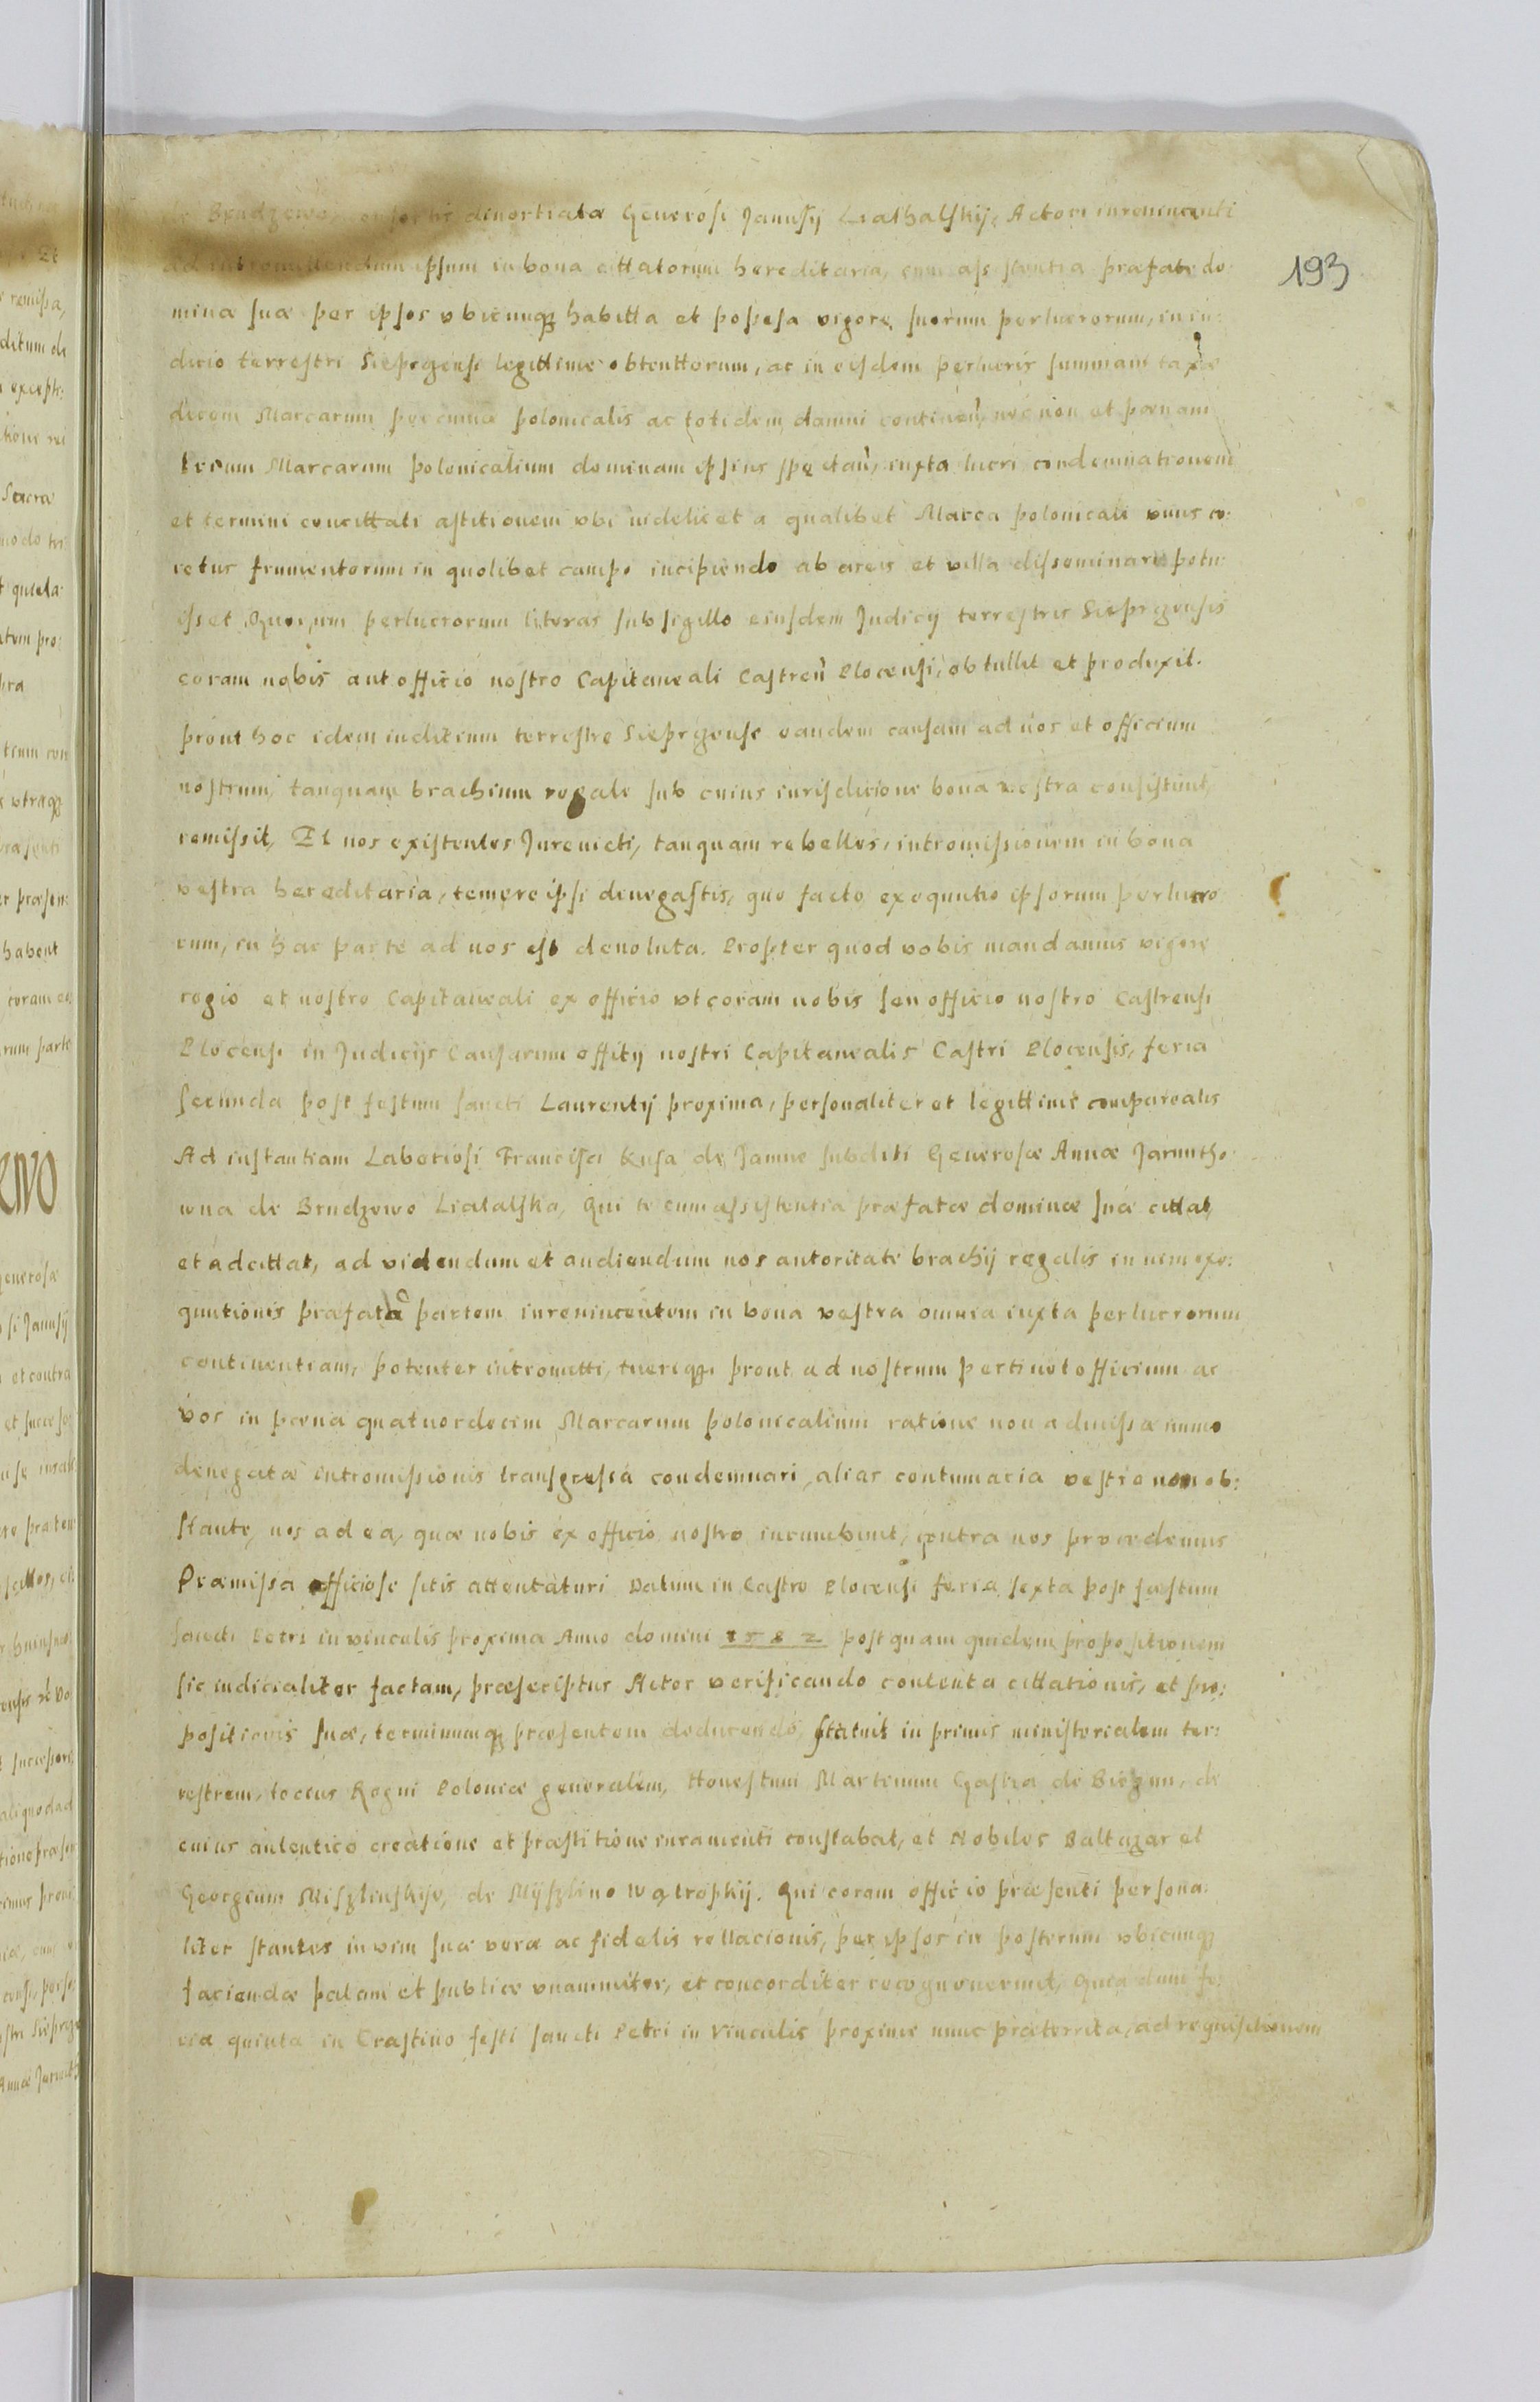 de Brudzewo, consortis divortiatæ Generosi Janusÿ Liathalskÿ, Actori iurevincenti
ad intromittendum ipsum in bona cittatorum hereditaria, cum assistentia præfatæ do:
minæ suæ per ipsos vbicunq3 habitta et possesa vigore suorum perlucrorum, in iu:
dicio terrestri Sieprgensi legittime obtenttorum, ac in eisdem perlucris summam taxæ
decem Marcarum pecuniæ polonicalis ac totidem damni continen̄, nec non et pœnam
trium Marcarum polonicalium dominam ipsius spectan̄, iuxta lucri condemnationem
et termini concittati astitionem vbi videlicet a qualibet Marca polonicali vnus co:
retus frumentorum in quolibet campo incipiendo ab areis et villa disseminari potu:
isset Quorum perlucrorum literas sub sigillo eiusdem Judicÿ terrestris Sieprgensis
coram nobis aut officio nostro Capitaneali Castren̄ Plocensi, obtullit et produxit.
prout hoc idem inditium terrestre Sieprgense eandem causam ad nos et officium
nostrum, tanquam brachium regale sub cuius iurisdicione bona vestra consistunt,
remissit, Et vos existentes Jurevicti, tanquam rebelles, intromissionem in bona
vestra hereditaria, temere ipsi denegastis, quo facto exequutio ipsorum perlucro
rum, in hac parte ad nos est devoluta. Propter quod vobis mandamus vigore
regio et nostro Capitaneali ex officio vt coram nobis seu officio nostro Castrensi
Plocensi in Judicÿs Causarum offitÿ nostri Capitanealis Castri Plocensis, feria
secunda post festum sancti Laurentÿ proxima, personaliter et legittime compareatis
Ad instantiam Laboriosi Francisci Kusa de Jamne subditi Generosæ Annæ Jaruntho
wna de Brudzewo Liatalska, Qui te cum assistentia præfatæ dominæ suæ cittat,
et adcittat, ad videndum et audiendum nos autoritate brachÿ regalis in vim exe:
quutionis præfatā partem iurevincentem in bona vestra omnia iuxta perlucrorum
continentiam, potenter intromitti, tueriq3 prout ad nostrum pertinet officium ac
vos in pœna quatuordecim Marcarum polonicalium ratione non admissæ immo
denegatæ intromissionis transgressa condemnari, alias contumacia vestra non ob:
stante, nos ad ea, quæ nobis ex officio nostro incumbunt, contra vos procedemus
Præmissa officiose sitis attentaturi Datum in Castro Plocensi feria sexta post fæstum
sancti Petri in vinculis proxima Anno domini 1582 post quam quidem propositionem
sic iudicialiter factam, præscriptus Actor verificando contenta cittationis, et pro:
positionis suæ, terminumq3 præsentem deducendo, statuit in primis ministerialem ter:
restrem, tocius Regni Poloniæ generalem, Honestum Martinum Gastia de Biezun, de
cuius autentico creatione et præstitione iuramenti constabat, et Nobiles Baltazar et
Georgium Miszlinskÿe, de Mÿszlino Wątropkÿ. Qui coram officio præsenti persona:
liter stantes in vim suæ veræ ac fidelis rellacionis, per ipsos in posterum vbicunq3
faciendæ palam et publice vnanimiter, et concorditer recognoverunt, Quia dum fe:
ria quinta in Crastino festi sancti Petri in Vinculis proxime nunc præterrita, ad requisitionem
193